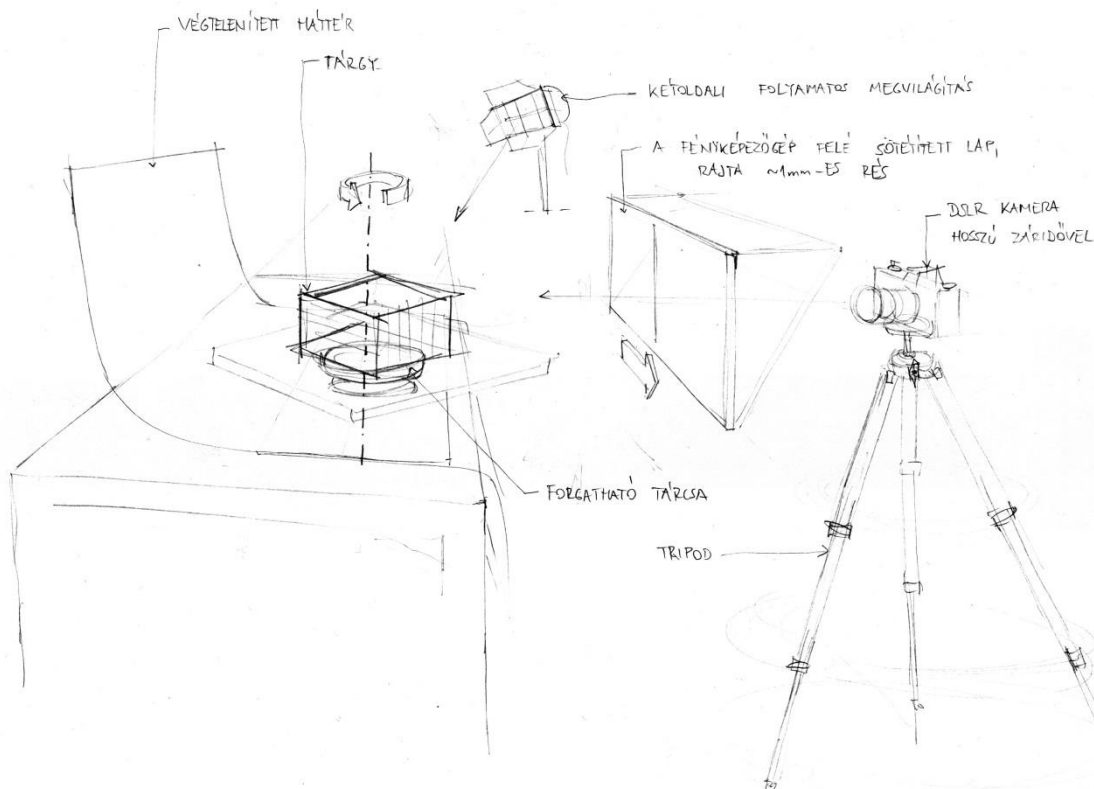 VÉGTELENÍTETT HÁTTÉR
TÁRGY
KÉTOLDALI FOLYAMATOS MEGVILÁGÍTÁS
A FÉNYKÉPEZŐGÉP FELÉ SÖTÉTÍTETT LAP,
RAJTA ~1mm-ES RÉS
DSLR KAMERA
HOSSZÚ ZÁRIDŐVEL
FORGATHATÓ TÁRCSA
TRIPOD